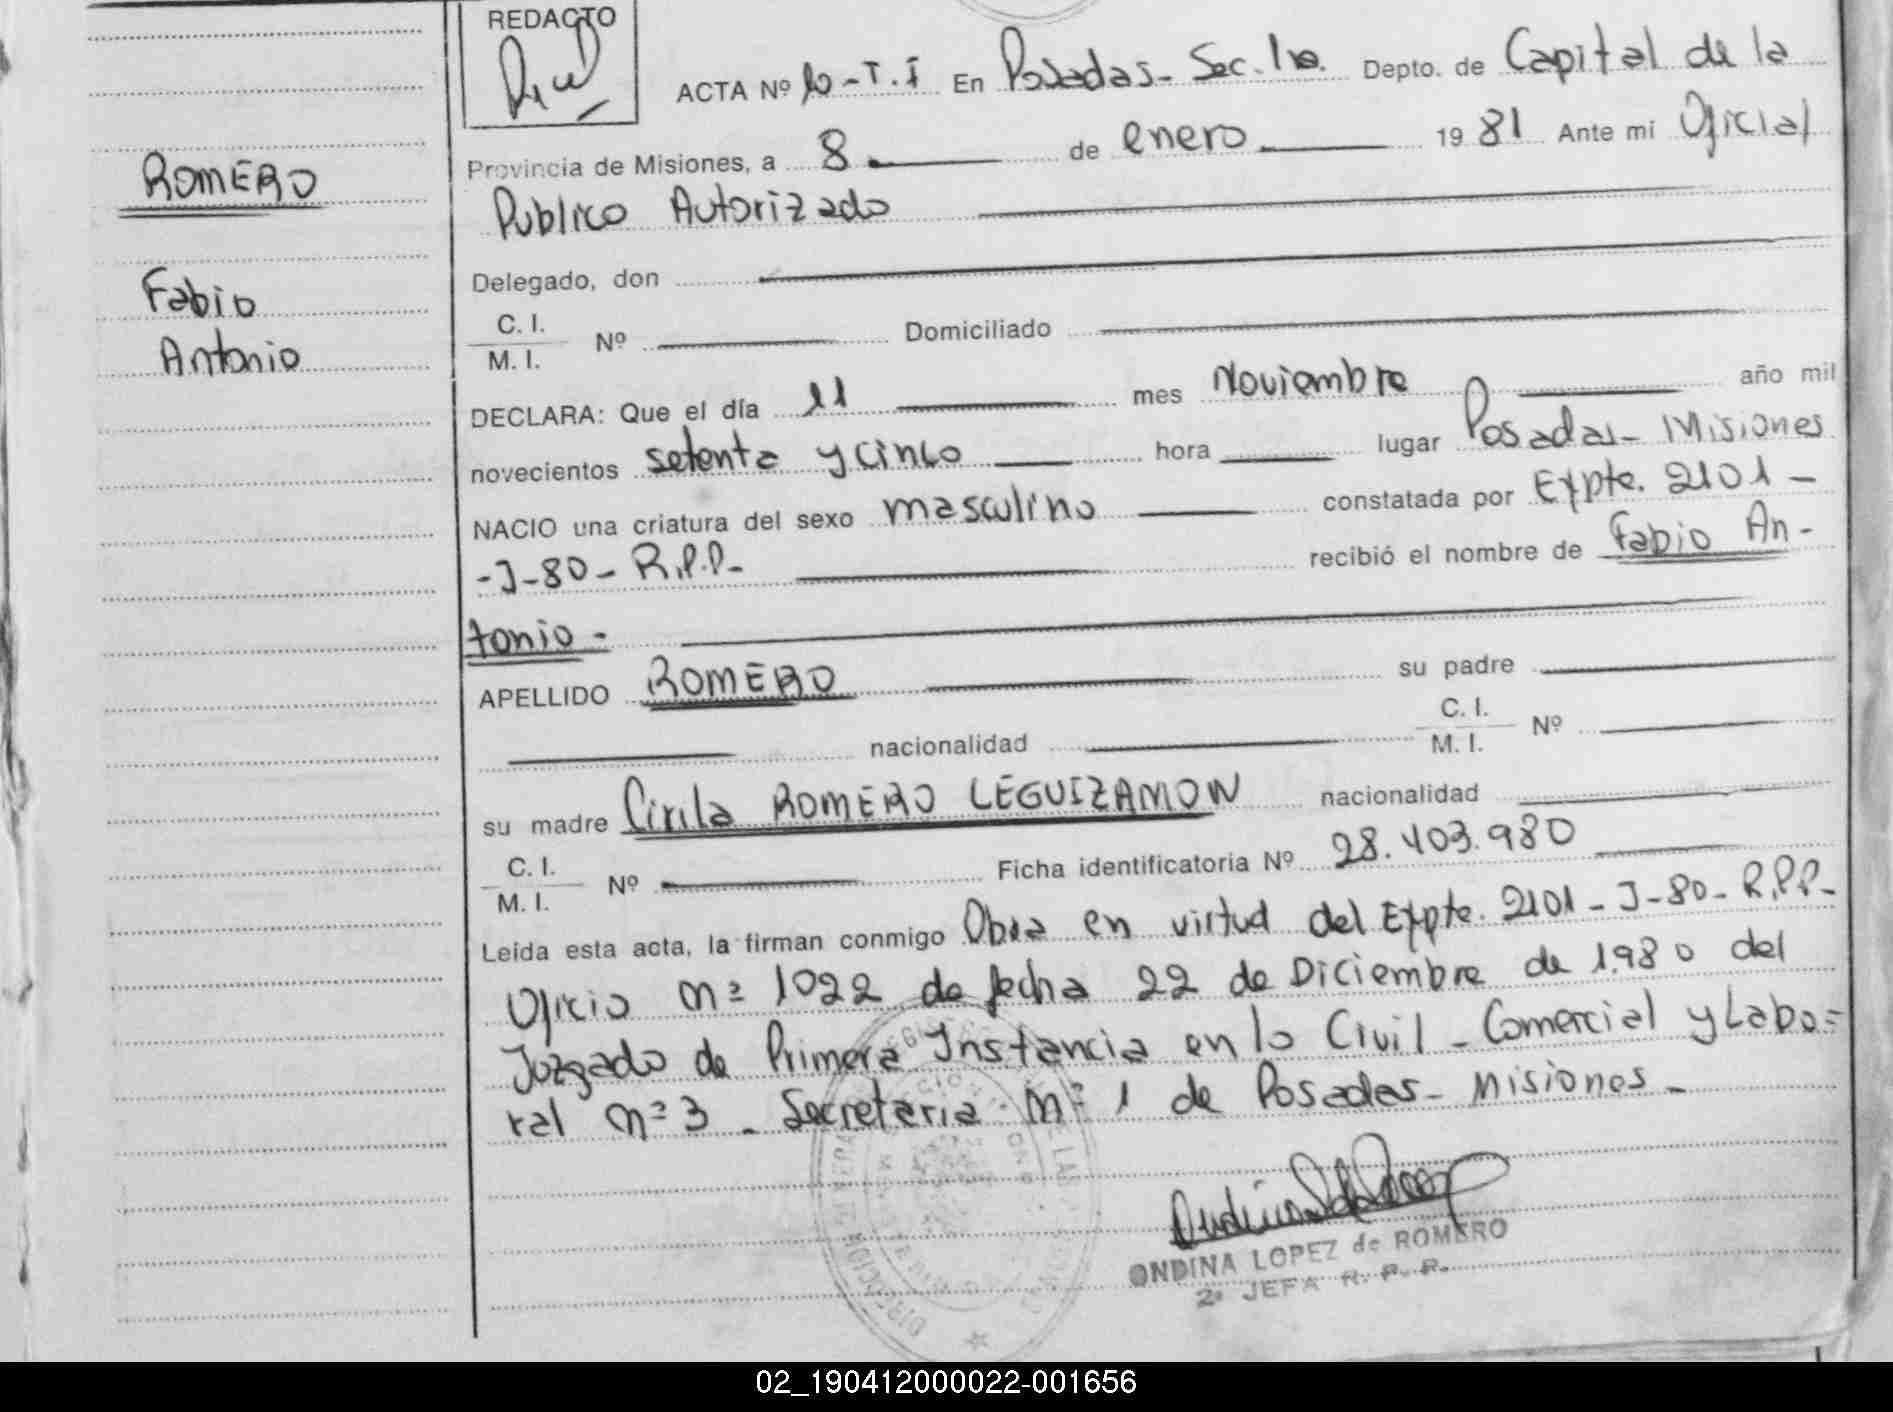 REDACTO
ACTA Nº 10-T.I En Posadas- Sec. 1ra. Depto. de Capital de la
Provincia de Misiones, a 8 de enero 19 81 Ante mi Oficial
Publico Autorizado
ROMERO
Delegado, don
Fabio
C. I.
M. I. Nº Domiciliado
Antonio
DECLARA: Que el día 11 mes Noviembre año mil
novecientos setenta y cinco hora lugar Posadas- Misiones
NACIO una criatura del sexo masculino constatada por Expte. 2101-
-J-80- R.P.P.- recibió el nombre de Fabio An-
tonio-
APELLIDO ROMERO su padre
nacionalidad C. I.
M. I. Nº
su madre Cirila ROMERO LEGUIZAMON nacionalidad
C. I.
M. I. Nº Ficha identificatoria Nº 28.403.980
Leída esta acta, la firman conmigo Obra en virtud del Expte. 2101-J-80-R.P.P-
Oficio Nº 1022 de fecha 22 de Diciembre de 1.980 del
Juzgado de Primera Instancia en lo Civil - Comercial y Labo=
ral Nº 3 - Secretaria Nº 1 de Posadas- Misiones -
ONDINA LOPEZ de ROMERO
2ª JEFA R. P. P.
02_190412000022-001656